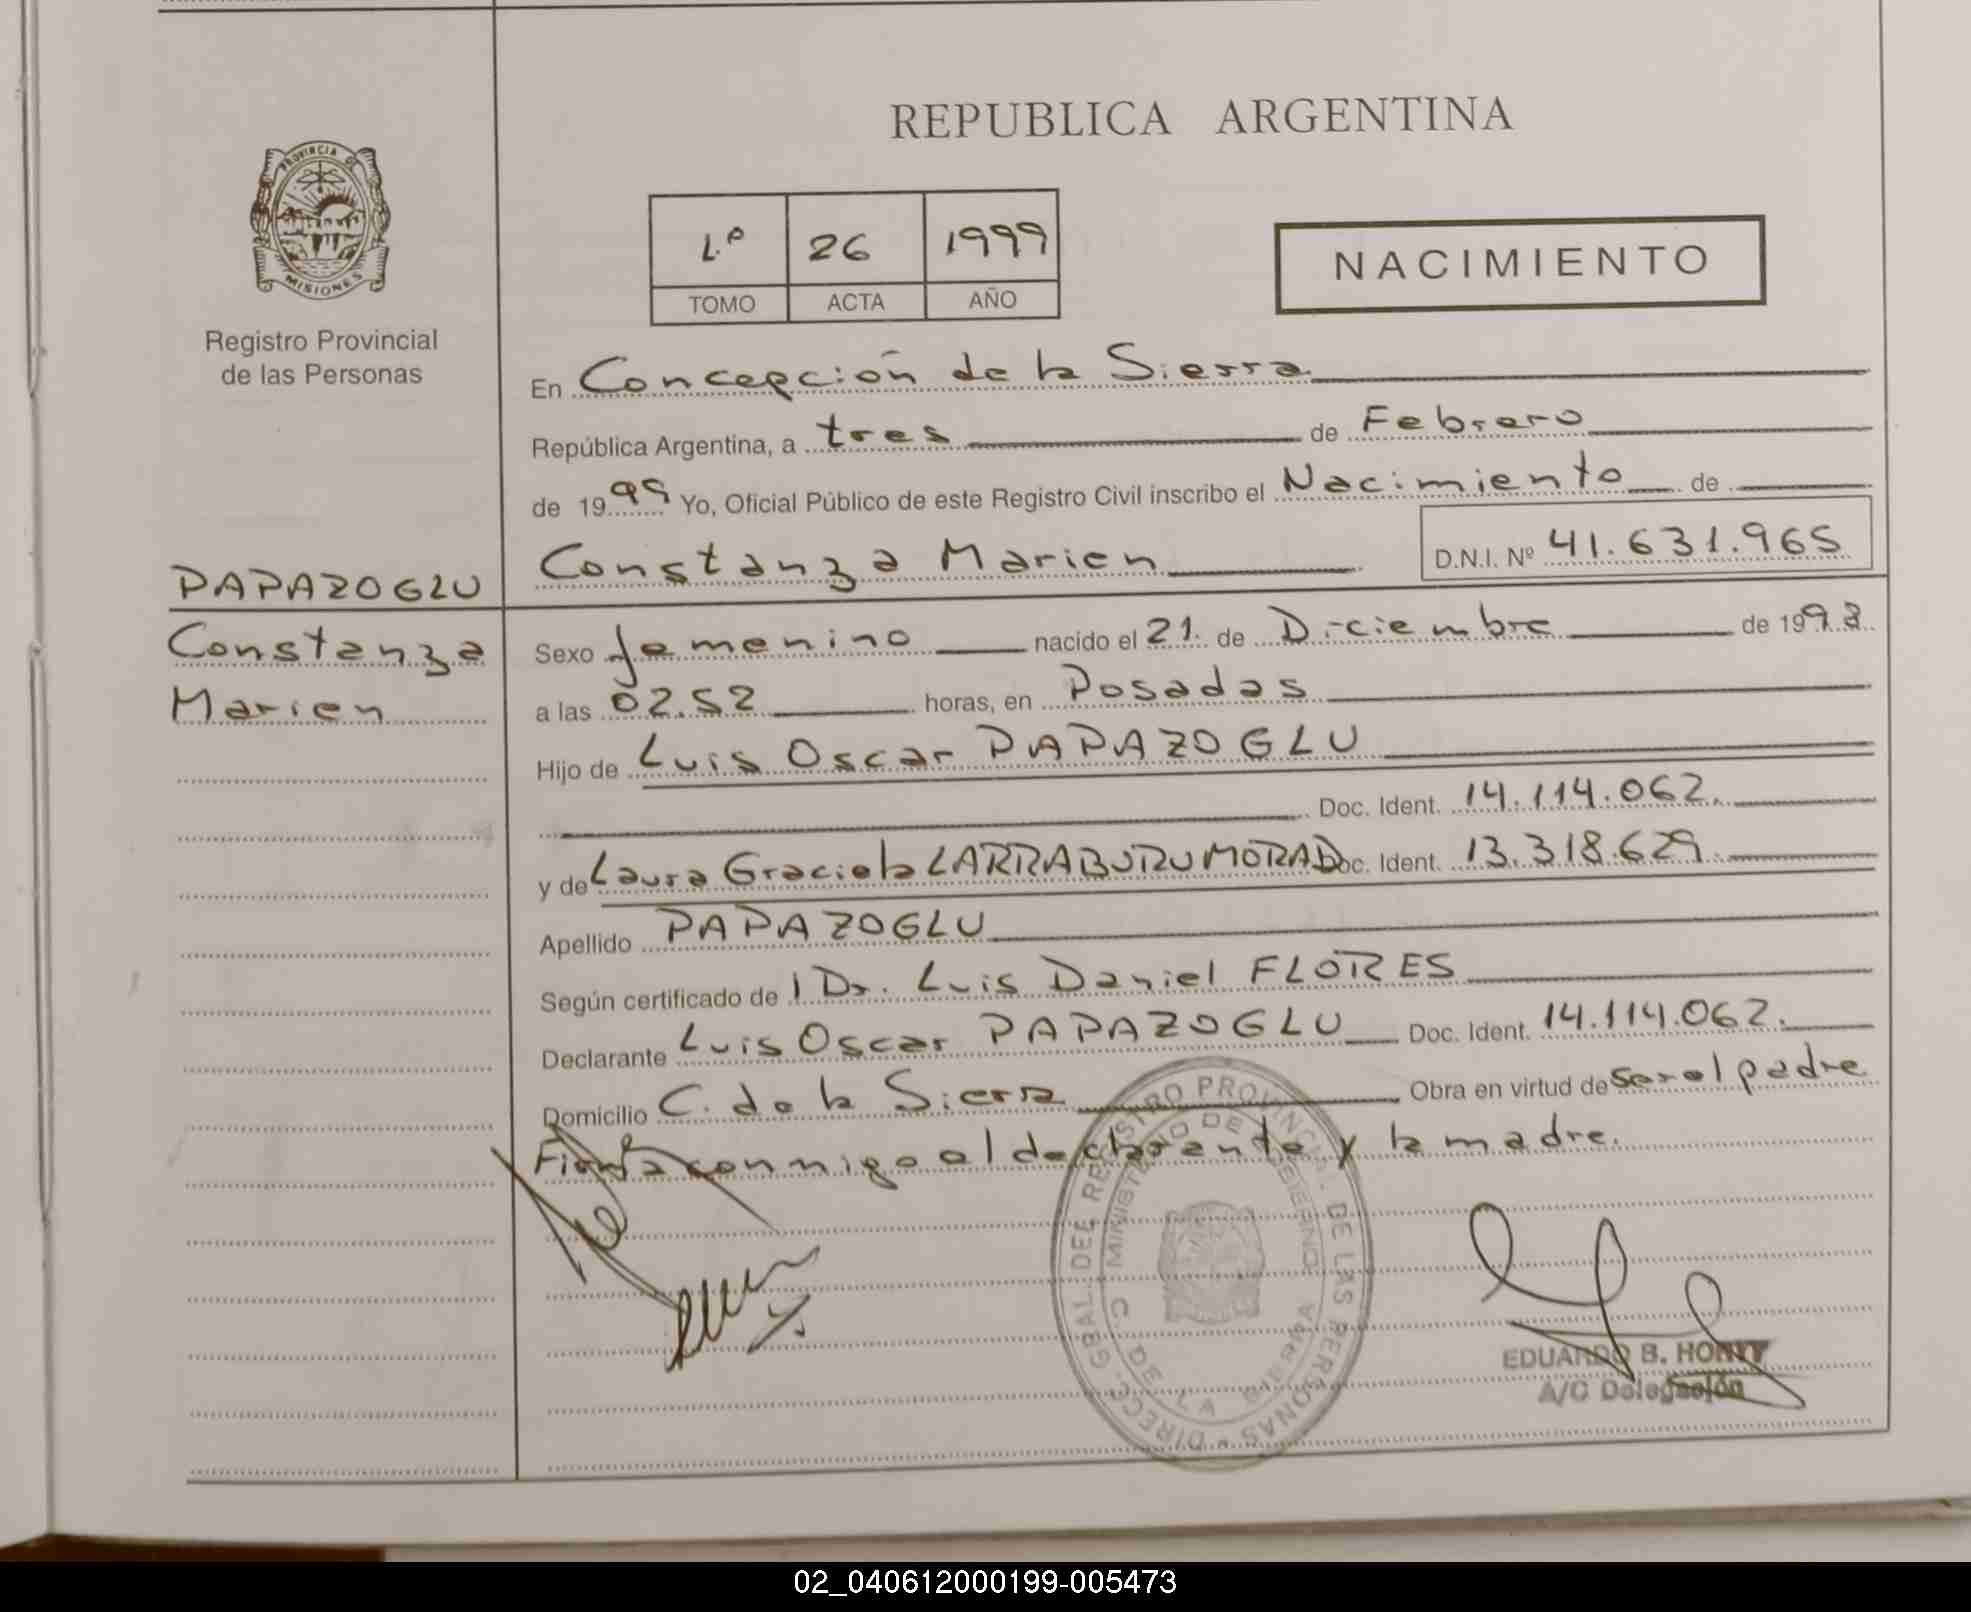 REPUBLICA ARGENTINA
PROVINCIA DE
MISIONES
Registro Provincial
de las Personas
1º 26 1999
TOMO ACTA AÑO
NACIMIENTO
En Concepción de la Sierra
República Argentina, a tres de Febrero
de 1999 Yo, Oficial Público de este Registro Civil inscribo el Nacimiento de
Constanza Marien D.N.I. Nº 41.631.965
PAPAZOGLU
Constanza
Marien
Sexo femenino nacido el 21. de Diciembre de 1998
a las 02.52 horas, en Posadas
Hijo de Luis Oscar PAPAZOGLU
Doc. Ident. 14.114.062.
y de Laura Graciela LARRABURU MORAD Doc. Ident. 13.318.629.
Apellido PAPAZOGLU
Según certificado de l Dr. Luis Daniel FLORES
Declarante Luis Oscar PAPAZOGLU Doc. Ident. 14.114.062.
Domicilio C. de la Sierra Obra en virtud de ser el padre
Firma conmigo el declarante y la madre.
DIRECC. GRAL. DEL REGISTRO PROVINCIAL DE LAS PERSONAS
MINISTERIO DE GOBIERNO
C. DE LA SIERRA
EDUARDO B.
A/C Delegación
02_040612000199-005473